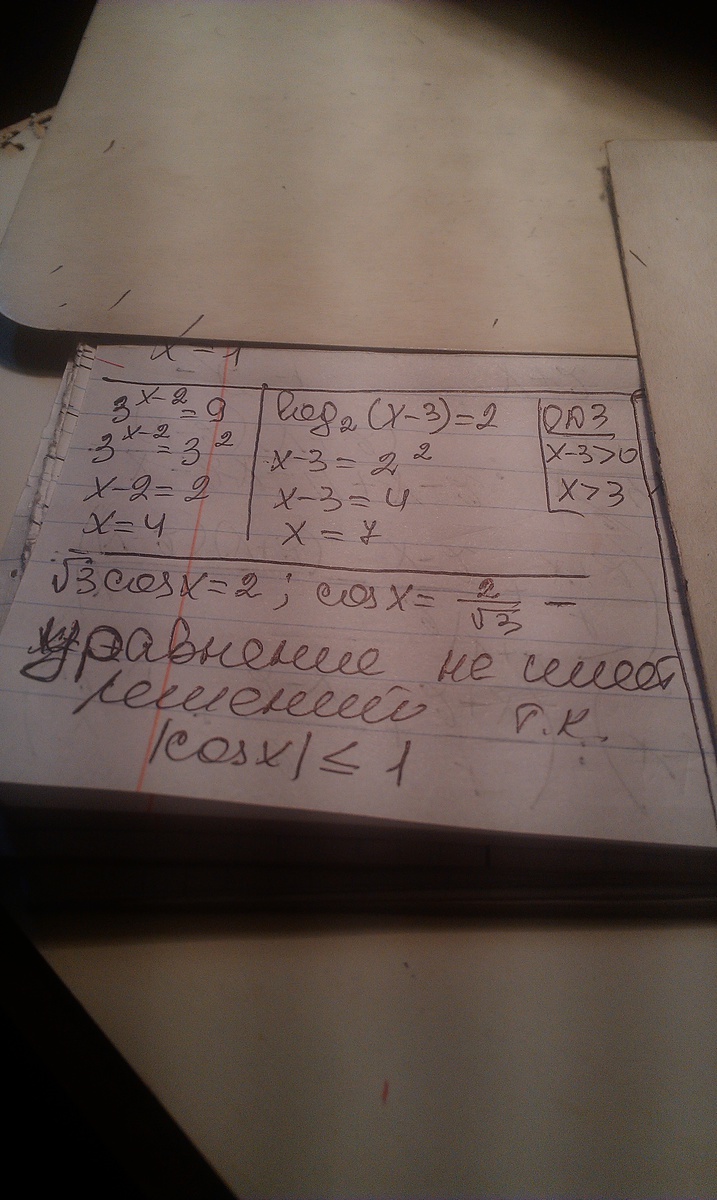 x = 1
3^(x-2) = 9
3^(x-2) = 3^2
x-2 = 2
x = 4
log₂(x-3) = 2
x-3 = 2^2
x-3 = 4
x = 7
ОДЗ
x-3>0
x>3
√3 cosx = 2 ; cosx = 2/√3 –
уравнение не имеет
решений т.к.
|cosx| ≤ 1